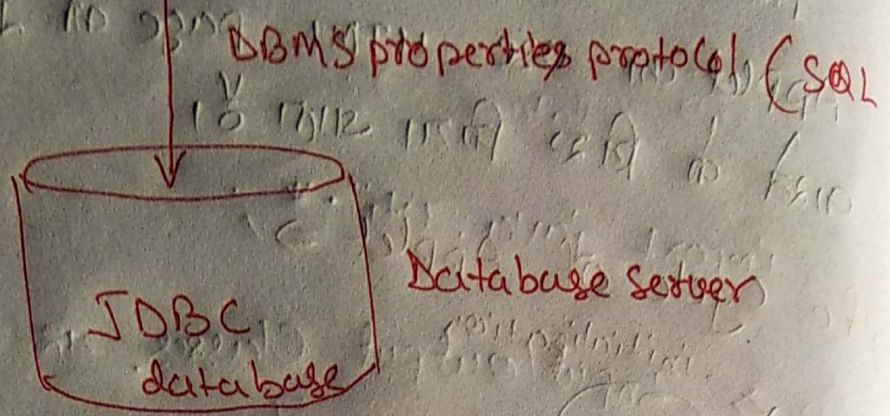 DBMS properties protocol (SQL
Database Server
JDBC
database